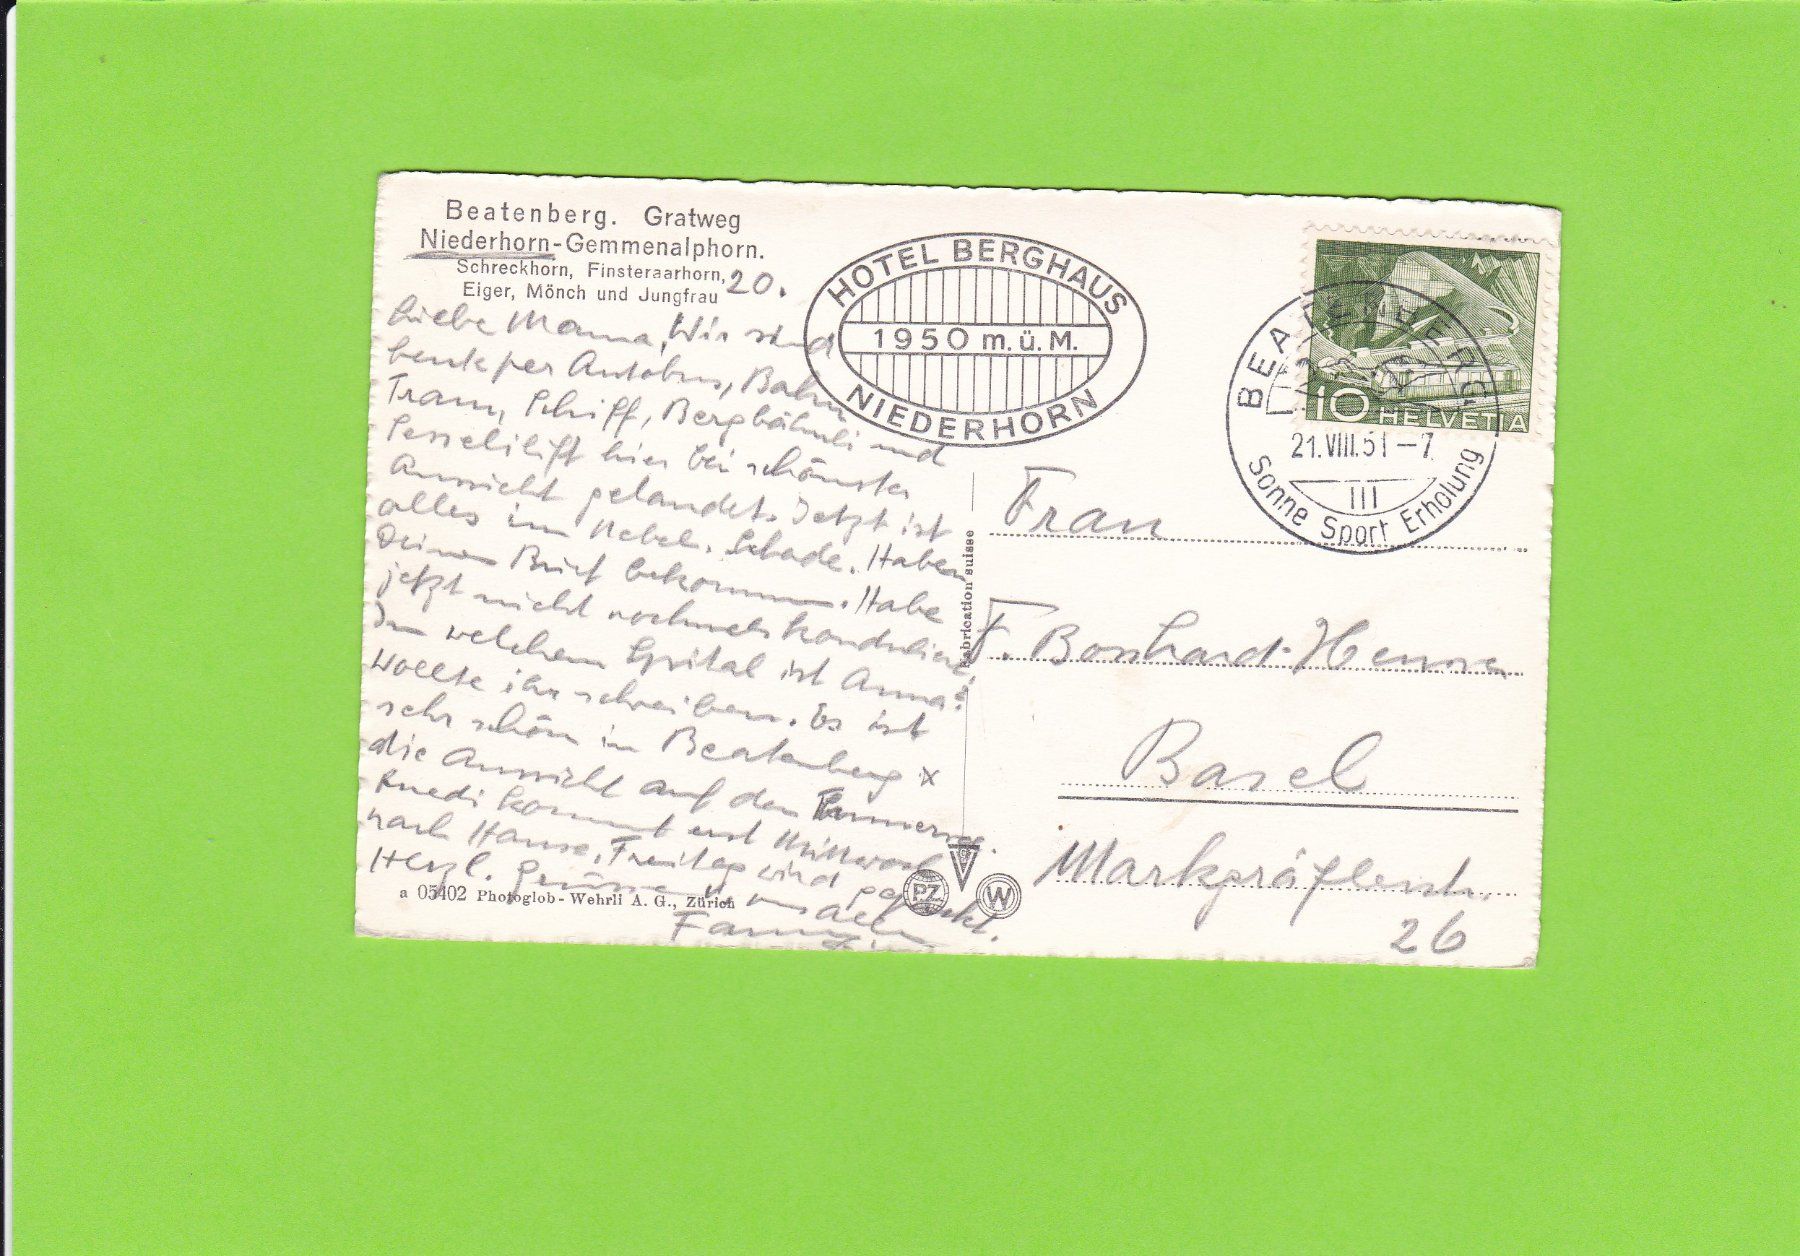 Beatenberg. Gratweg
Niederhorn-Gemmenalphorn.
Schreckhorn, Finsteraarhorn,
Eiger, Mönch und Jungfrau
20.
Liebe Mama, Wir sind
heute per Autobus, Bahn
Tram, Schiff, Bergbähnli und
Sesselilift hier bei schönster
Aussicht gelandet. Jetzt ist
alles im Nebel. Schade. Haben
Deinen Brief bekommen. Habe
jetzt nicht nochmals kondoliert.
In welchem Spital ist Anna?
Wollte ihr schreiben. Es ist
sehr schön in Beatenberg x
die Aussicht auf dem
Ruedi kommt erst Mittwoch
nach Hause. Freitag wird
Herzl. Grüsse von allen
Fanny.
a 05402 Photoglob-Wehrli A. G., Zürich
HOTEL BERGHAUS
1950 m.ü.M.
NIEDERHORN
Fabrication suisse
PZ
W
10 HELVETIA
BEATENBERG
21.VIII.51-7
III
Sonne Sport Erholung
Frau
F. Bosshard-
Basel
Markgräflerstr.
26